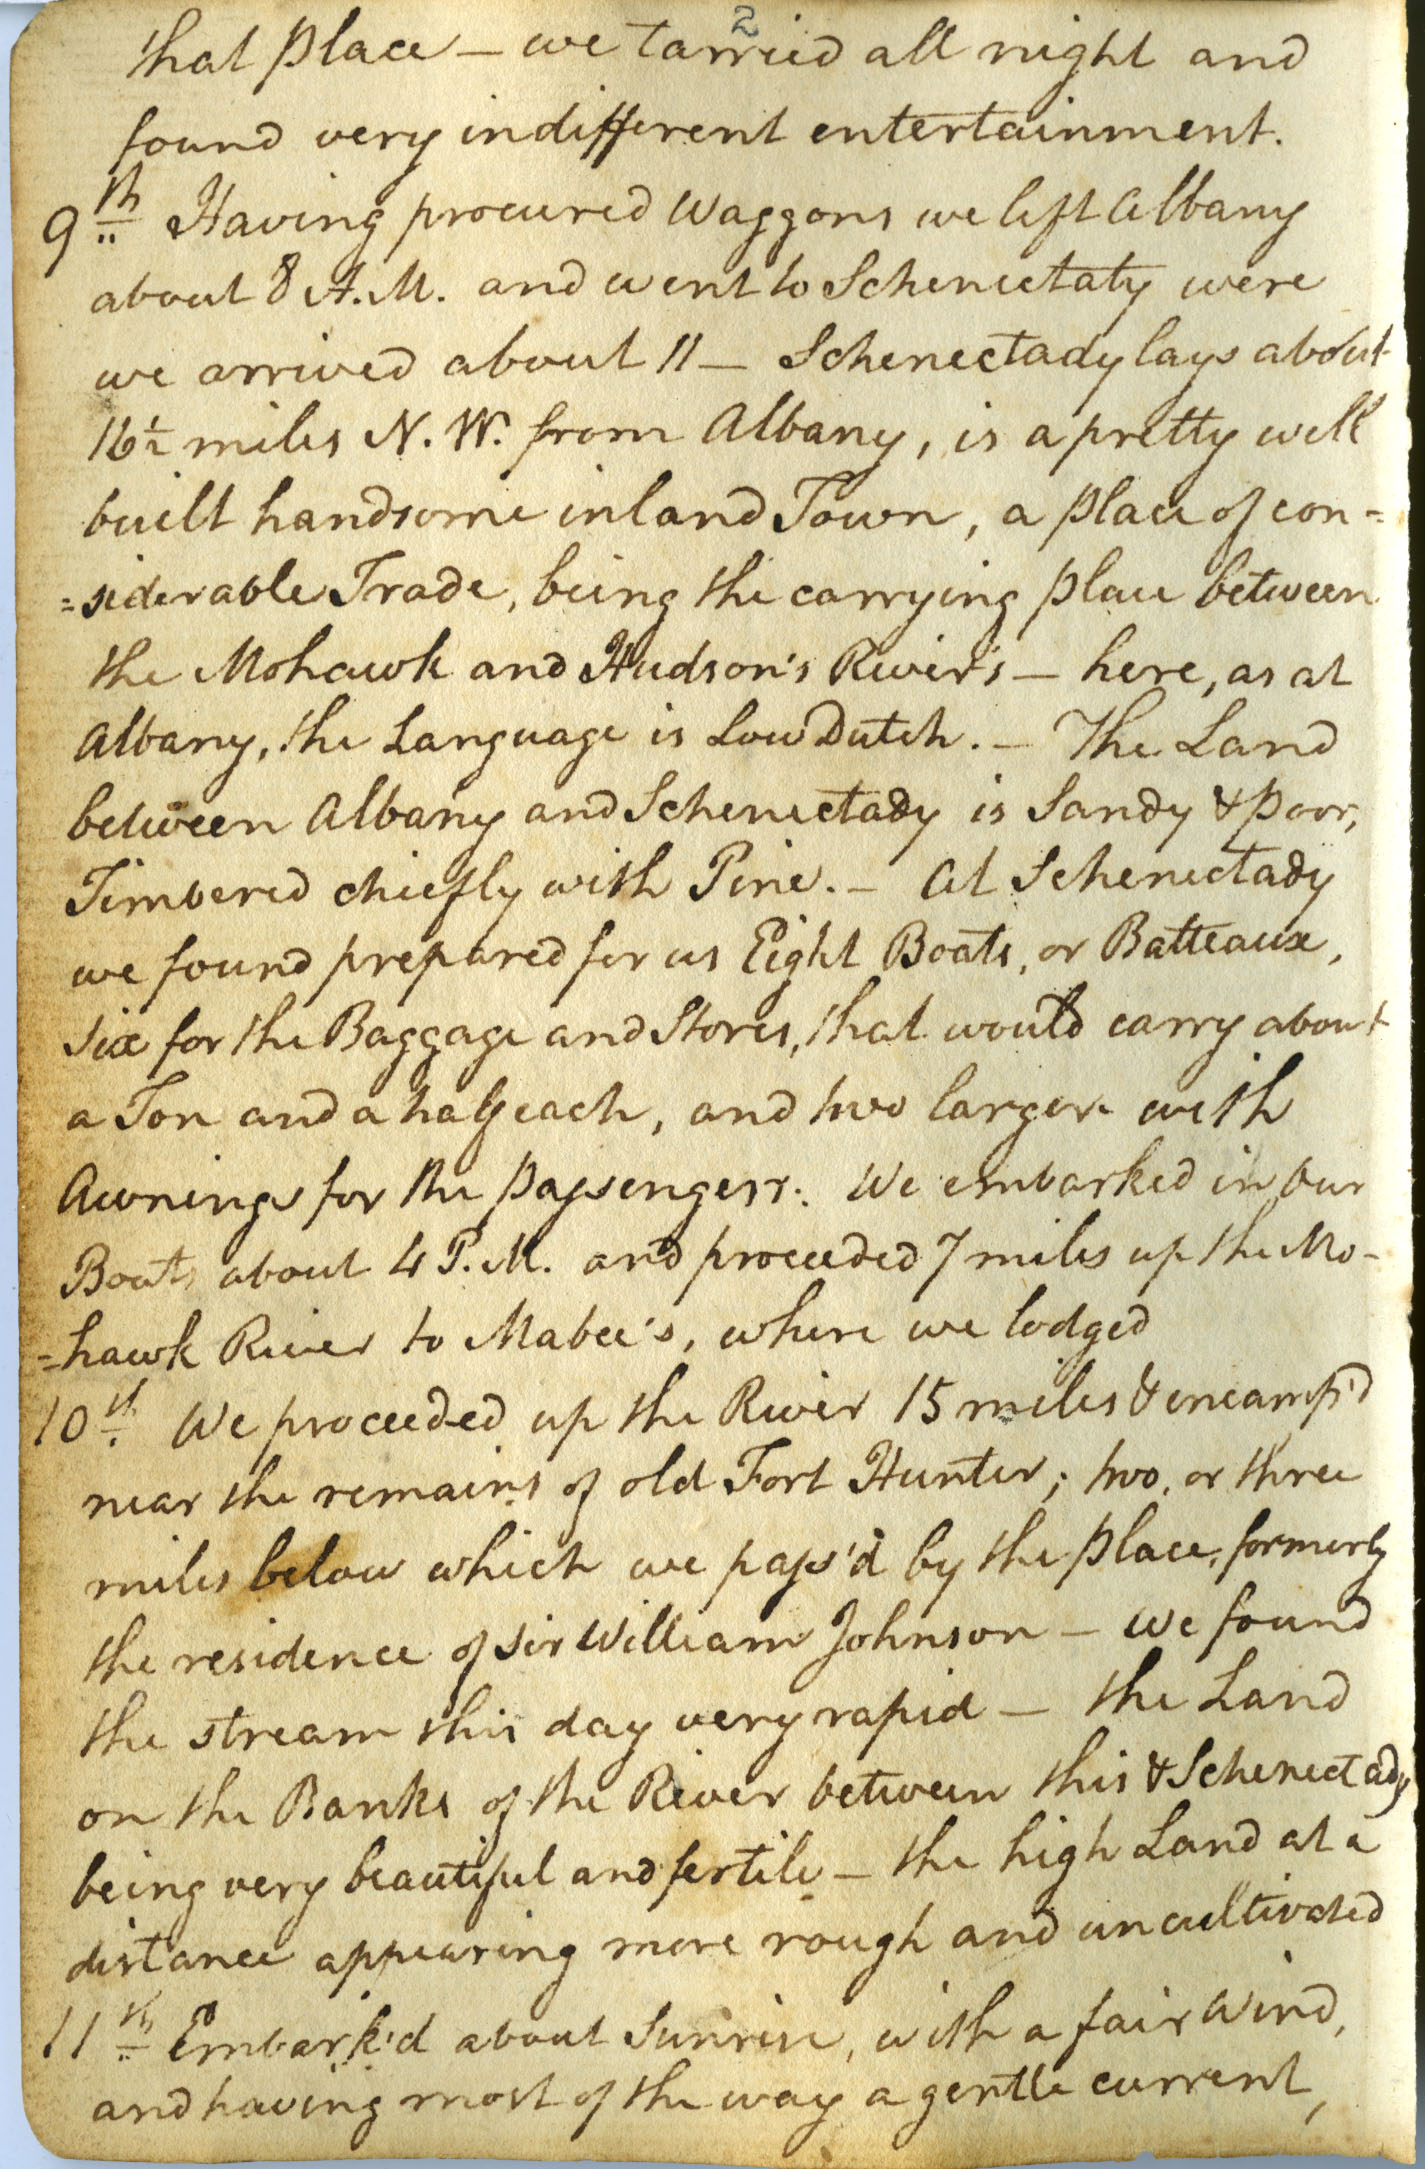 2
that place – we tarried all night and
found very indifferent entertainment.
9th Having procured Waggons we left Albany
about 8 A.M. and went to Schenectaty were
we arrived about 11 – Schenectady lays about
16½ miles N.W. from Albany, is a pretty well
built handsome inland Town, a place of con=
=siderable Trade, being the carrying place between
the Mohawk and Hudson's River's – here, as at
Albany, the Language is Low Dutch. – The Land
between Albany and Schenectady is Sandy & poor,
Timbered chiefly with Pine. – At Schenectady
we found prepared for us Eight Boats, or Batteaux,
six for the Baggage and Stores, that would carry about
a Ton and a half each, and two larger with
Awnings for the passengers. We embarked in our
Boats about 4 P.M. and proceeded 7 miles up the Mo-
=hawk River to Mabee's, where we lodged
10th We proceeded up the River 15 miles & encamp'd
near the remains of old Fort Hunter; two, or three
miles below which we pass'd by the place, formerly
the residence of Sir William Johnson – we found
the stream this day very rapid – the Land
on the Banks of the River between this & Schenectady
being very beautiful and fertile – the high Land at a
distance appearing more rough and uncultivated
11th Embark'd about Sunrise, with a fair Wind,
and having most of the way a gentle current,